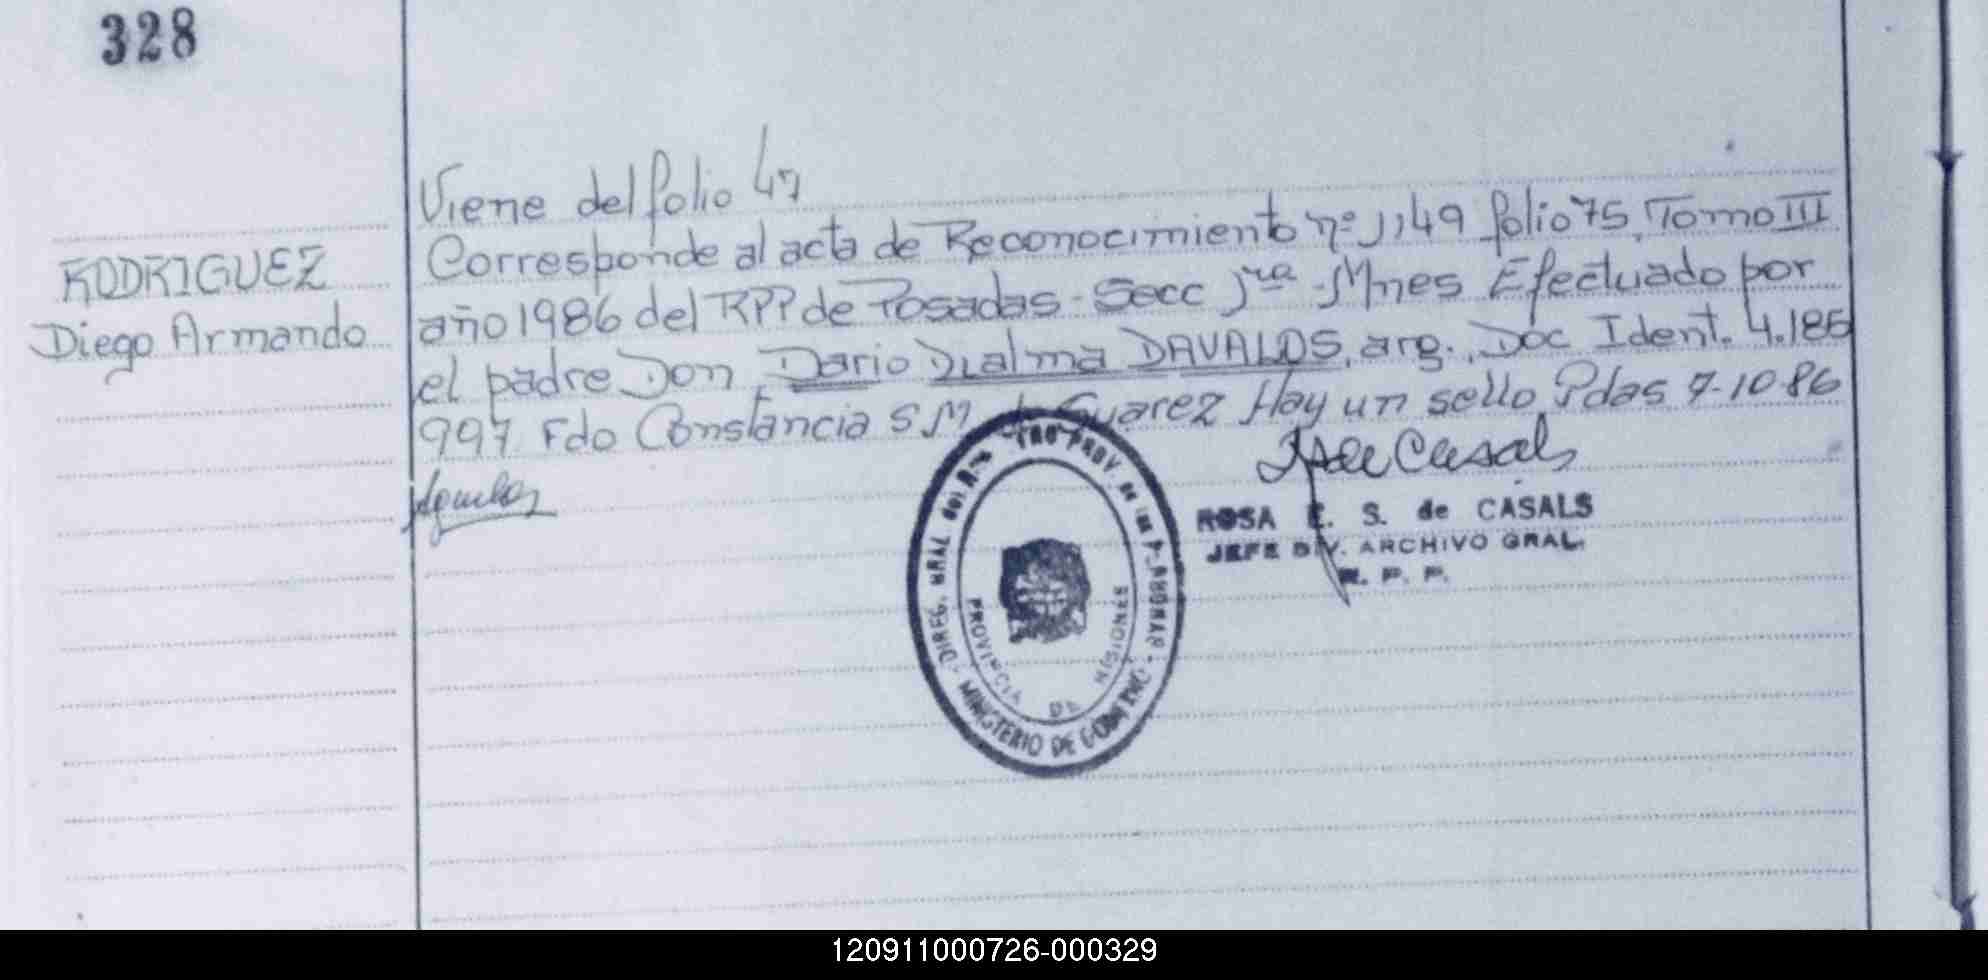 328
Viene del folio 47
RODRIGUEZ
Diego Armando
Corresponde al acta de Reconocimiento nº 1149 folio 75, Tomo III
año 1986 del RPP de Posadas - Secc 1ra - Mnes Efectuado por
el padre Don Dario Djalma DAVALOS, arg., Doc Ident. 4.185
997. Fdo Constancia S M de Suarez Hay un sello Pdas 7-10-86
ROSA E. S. de CASALS
JEFE DIV. ARCHIVO GRAL.
R. P. P.
DIREG. GRAL. del
PROV. de las
MINISTERIO DE GOBIERNO
PROVINCIA DE MISIONES
120911000726-000329